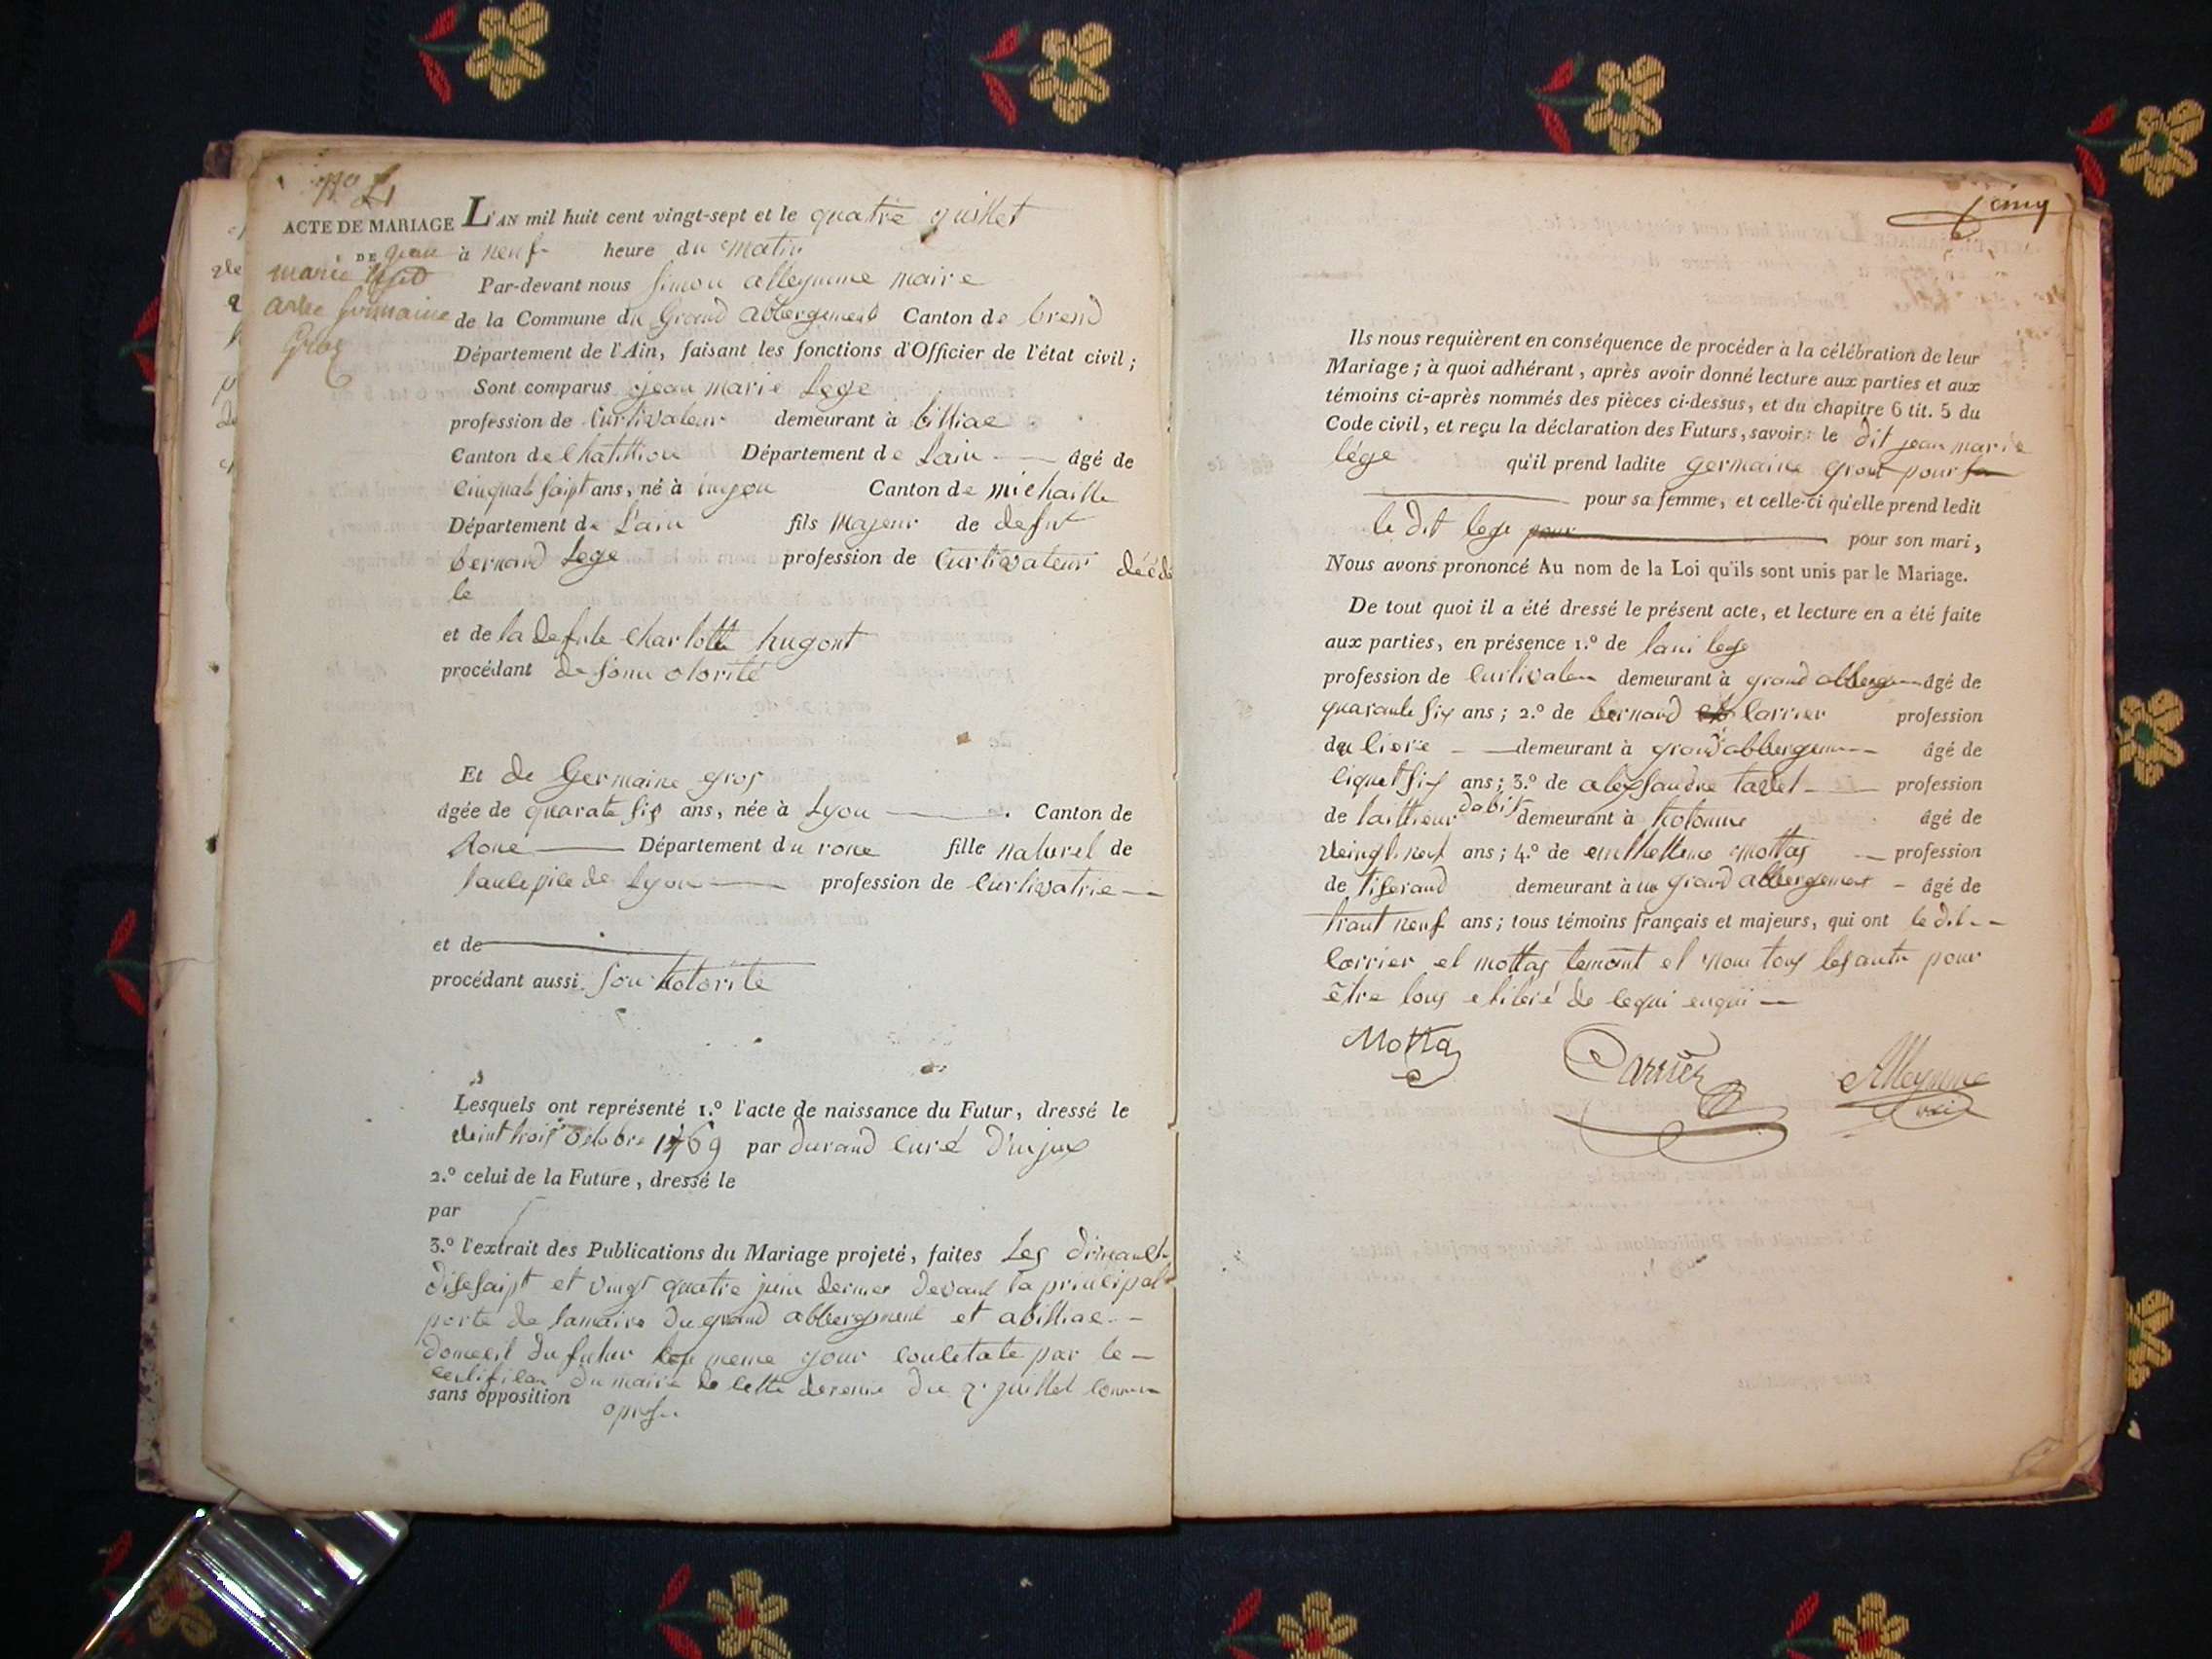 No 4
ACTE DE MARIAGE
DE jean
marie lege
avec Germaine
Gros
L'AN mil huit cent vingt-sept et le quatre juillet
à neuf heure du matin
Par-devant nous Simon alleymme maire
de la Commune du Grand abbergement Canton de brend
Département de l'Ain, faisant les fonctions d'Officier de l'état civil;
Sont comparus jean marie Lege
profession de Curtivateur demeurant à billiae
Canton de Chatillion Département de Lain âgé de
Cinquate saipt ans, né à injou Canton de michaille
Département de L'ain fils Majeur de defut
bernard Lege profession de Curtivateur décédé
le
et de la defute Charlotte hugont
procédant de sonu otorité
Et de Germaine gros
âgée de quarate six ans, née à Lyon Canton de
Rone Département du rone fille naturel de
de Lyon profession de Curtivatrie
et de
procédant aussi son hotorité
Lesquels ont représenté 1.º l'acte de naissance du Futur, dressé le
veint trois octobre 1769 par durand Curé D'injoux
2.º celui de la Future, dressé le
par
3.º l'extrait des Publications du Mariage projeté, faites Les dimanche
disesaipt et vingt quatre juin dernier devant la principal
porte de lamairie du grand abbergement et abilliae
domecil du futur meme jour par le
du maire de cette derenie du 2 juillet
sans opposition
Ils nous requièrent en conséquence de procéder à la célébration de leur
Mariage; à quoi adhérant, après avoir donné lecture aux parties et aux
témoins ci-après nommés des pièces ci-dessus, et du chapitre 6 tit. 5 du
Code civil, et reçu la déclaration des Futurs, savoir: le dit jean marie
lége qu'il prend ladite germaine gros pour sa
pour sa femme, et celle-ci qu'elle prend ledit
le dit lege pour pour son mari,
Nous avons prononcé Au nom de la Loi qu'ils sont unis par le Mariage.
De tout quoi il a été dressé le présent acte, et lecture en a été faite
aux parties, en présence 1.º de lege
profession de Curtivateur demeurant à grand abbergement âgé de
quarante six ans; 2.º de bernard Carrier profession
de demeurant à grand abbergement âgé de
ciquet six ans; 3.º de alexsandre tavlet profession
de taillieur dabit demeurant à hotonne âgé de
veingt neuf ans; 4.º de mottas profession
de tiserand demeurant à grand abbergement âgé de
trant neuf ans; tous témoins français et majeurs, qui ont le dit
Carrier et mottas et nom tous les autre pour
être tous de cequi enqui
Mottas
Carrier
Alleymme